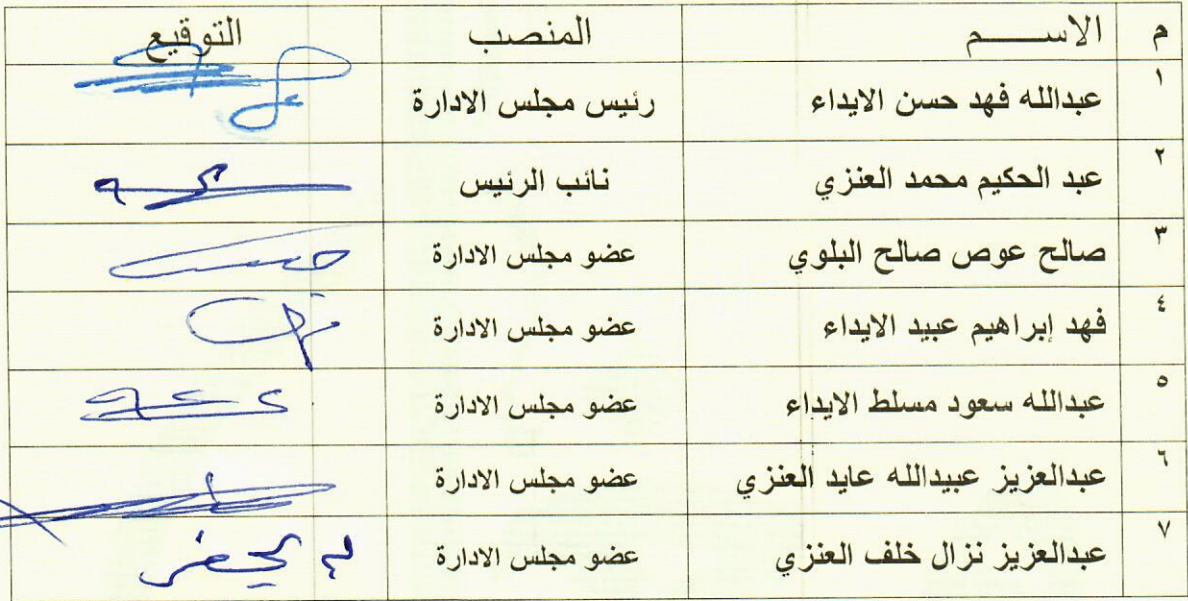 م الاســـــم المنصب التوقيع
١ عبدالله فهد حسن الايداء رئيس مجلس الادارة
٢ عبد الحكيم محمد العنزي نائب الرئيس
٣ صالح عوص صالح البلوي عضو مجلس الادارة
٤ فهد إبراهيم عبيد الايداء عضو مجلس الادارة
٥ عبدالله سعود مسلط الايداء عضو مجلس الادارة
٦ عبدالعزيز عبيدالله عايد العنزي عضو مجلس الادارة
٧ عبدالعزيز نزال خلف العنزي عضو مجلس الادارة لم يحضر